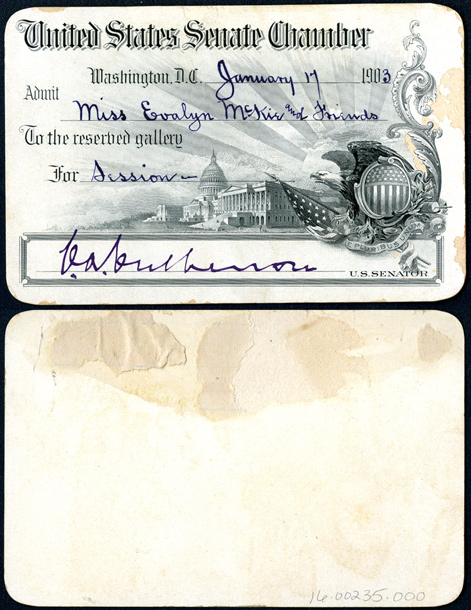 United States Senate Chamber
Washington, D.C. January 17 1903
Admit
Miss Evalyn McKie and Friends
To the reserved gallery
For Session
C.A. Culberson
PLURIBUS
U.S. SENATOR
16.00235.000